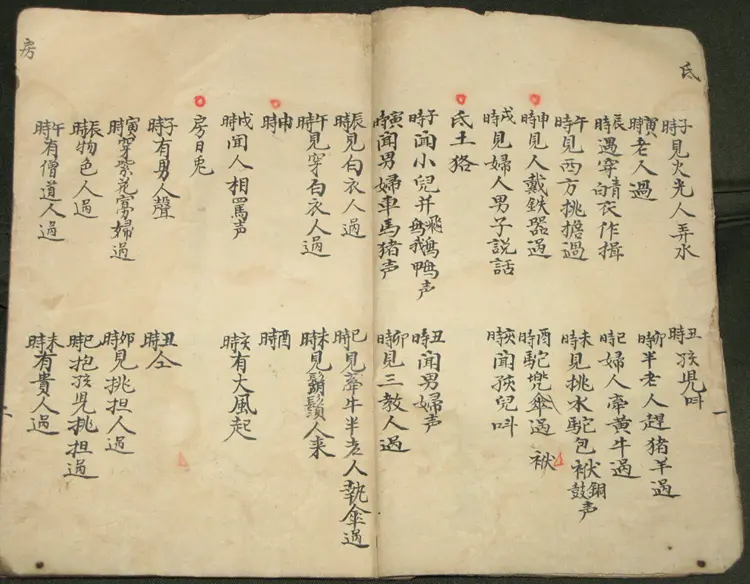 氐
子時見火光人弄水
丑時孩児叫
寅時老人過
卯時半老人趕猪羊過
辰時遇穿青白衣作揖
巳時婦人牽黄牛過
午時見西方挑擔過
未時見挑水駝包袱銅鼓声
申時見人戴鉄器過
酉時駝兜傘過 袱
戌時見婦人男子説話
亥時聞孩兒叫
氐土狢
子時聞小兒并鵝鴨声
丑時聞男婦声
寅時聞男婦車馬猪声
卯時見三教人過
辰時見白衣人過
巳時見牽牛半老人執傘過
午時見穿白衣人過
未時見鬍鬚人来
申時
酉時
戌時聞人相罵声
亥時有大風起
房日兎
子時有男人聲
丑時仝
寅時穿紫花寡婦過
卯時見挑担人過
辰時物色人過
巳時抱孩児挑担過
午時有僧道人過
未時有貴人過
房